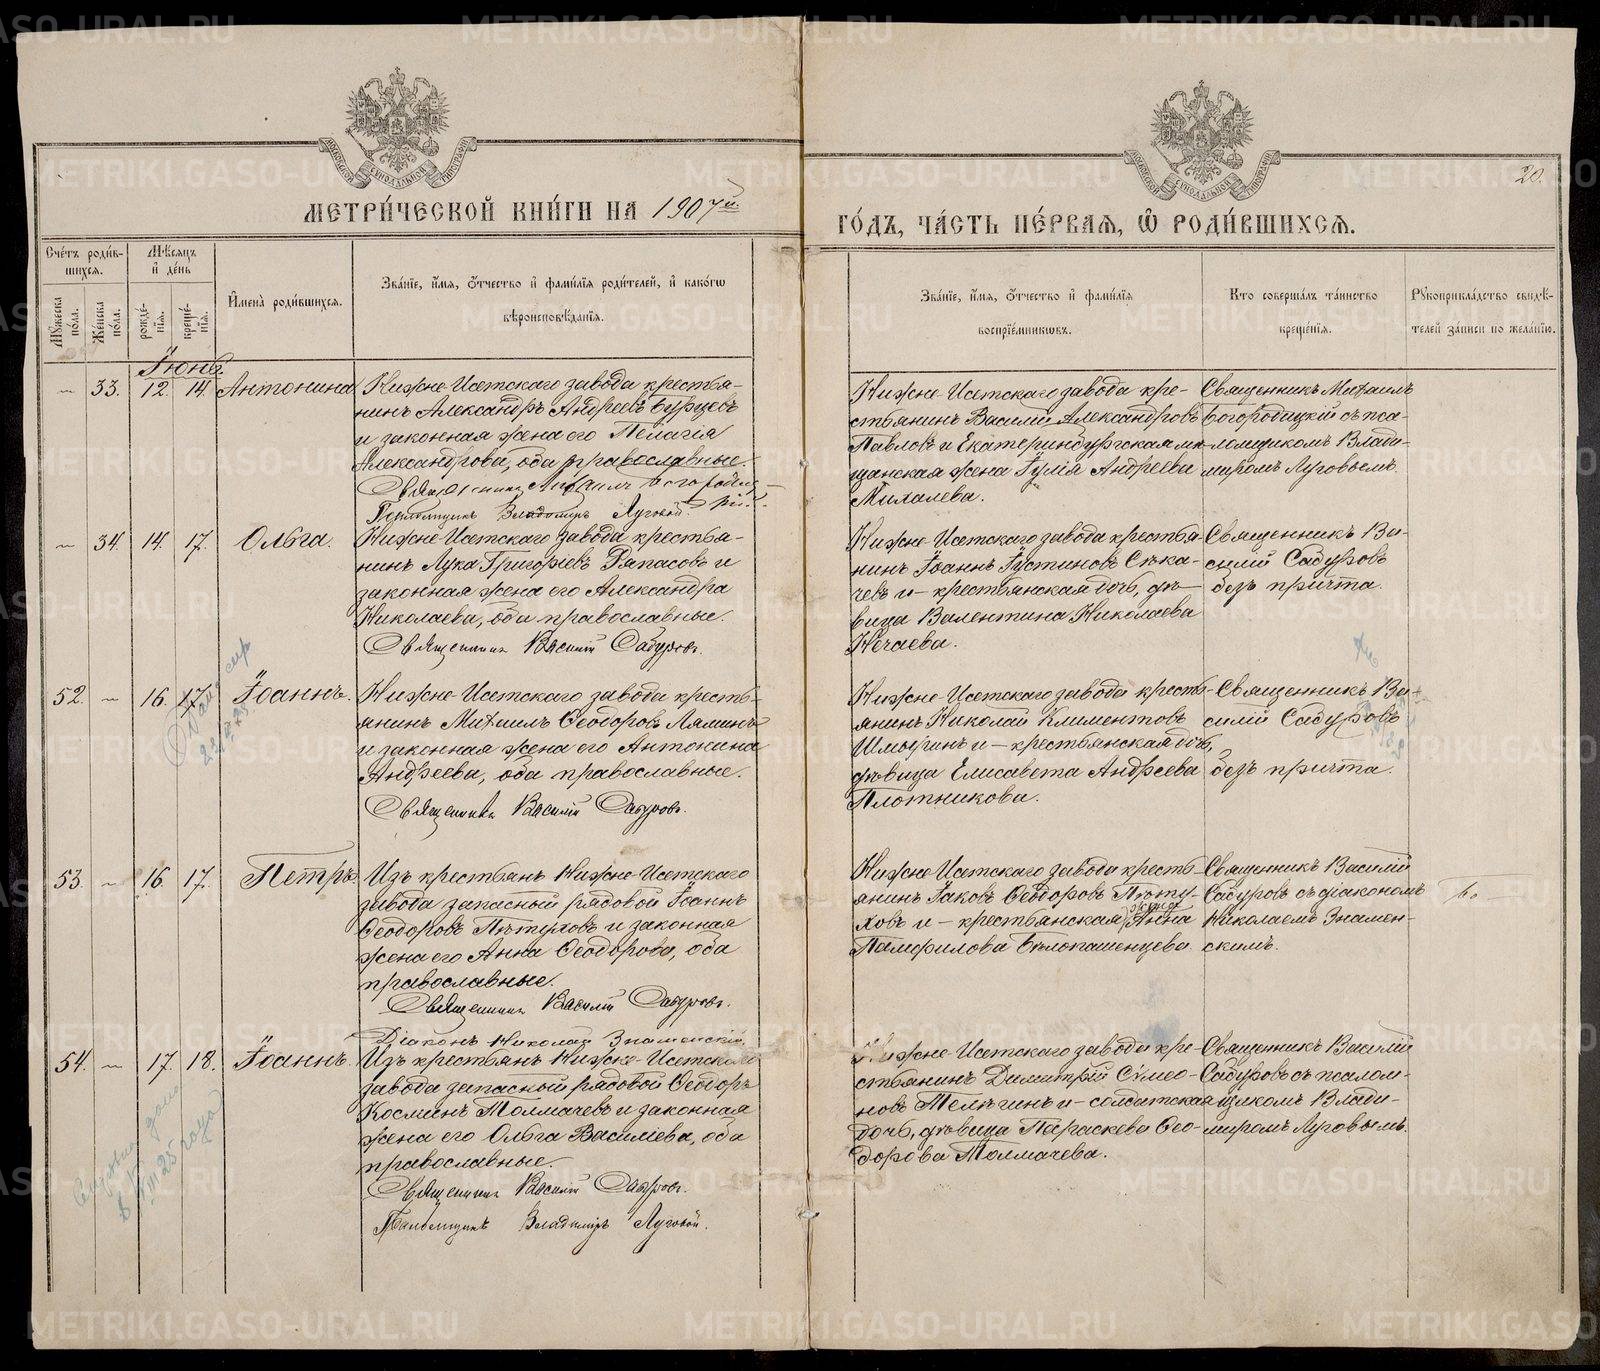 METRIKI.GASO-URAL.RU
МОСКОВСКОЙ СѴНОДАЛЬНОЙ ТИПОГРАФІИ
МОСКОВСКОЙ СѴНОДАЛЬНОЙ ТИПОГРАФІИ
20.
МЕТРИ́ЧЕСКОЙ КНИ́ГИ НА 1907й
ГО́ДЪ, ЧА́СТЬ ПЕ́РВАЯ, Ѡ҆ РОДИ́ВШИХСЯ.
Сче́тъ роди́в-
шихся.
Мѣ́сяцъ
и҆ де́нь
Му́жеска по́ла.
Же́нска по́ла.
рожде́-
нїя.
креще́-
нїя.
И҆мена̀ роди́вшихся.
Зва́нїе, и҆́мя, ѻ҆́тчество и҆ фами́лїя роди́телей, и҆ како́гѡ
вѣроисповѣ́данїя.
Зва́нїе, и҆́мя, ѻ҆́тчество и҆ фами́лїя
воспрїе́мникѡвъ.
Кто̀ соверша́лъ та́инство
креще́нїя.
Рукоприкла́дство свидѣ́-
телей за́писи по жела́нїю.
Іюнь.
– 33. 12. 14. Антонина
Нижне-Исетскаго завода крестья-
нинъ Александръ Андреевъ Бурцевъ
и законная жена его Пелагія
Александрова, оба православные.
Священникъ Михаилъ Богородиц-
кій.
Псаломщикъ Владимиръ Луговой.
Нижне-Исетскаго завода кре-
стьянинъ Василій Александровъ
Павловъ и Екатеринбургская мѣ-
щанская жена Іулія Андреева
Михалева.
Священникъ Михаилъ
Богородицкій съ пса-
ломщикомъ Влади-
миромъ Луговымъ.
– 34. 14. 17. Ольга.
Нижне-Исетскаго завода крестья-
нинъ Лука Григорьевъ Ряпасовъ и
законная жена его Александра
Николаева, оба православные.
Священникъ Василій Сабуровъ.
Нижне-Исетскаго завода крестья-
нинъ Іоаннъ Іустиновъ Сѣка-
чевъ и – крестьянская дочь, дѣ-
вица Валентина Николаева
Нечаева.
Священникъ Ва-
силій Сабуровъ
безъ причта.
52. – 16. 17. Іоаннъ.
Нижне-Исетскаго завода кресть-
янинъ Михаилъ Ѳеодоровъ Ляминъ
и законная жена его Антонина
Андреева, оба православные.
Священникъ Василій Сабуровъ.
Нижне-Исетскаго завода кресть-
янинъ Николай Климентовъ
Шмыринъ и – крестьянская дочь,
дѣвица Елисавета Андреева
Плотникова.
Священникъ Ва-
силій Сабуровъ
безъ причта.
53. – 16. 17. Петръ
Изъ крестьянъ Нижне-Исетскаго
завода запасный рядовой Іоаннъ
Ѳеодоровъ Пѣтуховъ и законная
жена его Анна Ѳеодорова, оба
православные.
Священникъ Василій Сабуровъ.
Діаконъ Николай Знаменскій.
Нижне-Исетскаго завода кресть-
янинъ Іаковъ Ѳеодоровъ Пѣту-
ховъ и – крестьянская жена Анна
Памфилова Бѣлопашенцева.
Священникъ Василій
Сабуровъ съ діакономъ
Николаемъ Знамен-
скимъ.
54. – 17. 18. Іоаннъ
Изъ крестьянъ Нижне-Исетскаго
завода запасный рядовой Ѳеодоръ
Косминъ Толмачевъ и законная
жена его Ольга Василіева, оба
православные.
Священникъ Василій Сабуровъ.
Псаломщикъ Владимиръ Луговой.
Нижне-Исетскаго завода кре-
стьянинъ Димитрій Сѵмео-
новъ Телѣгинъ и – солдатская
дочь, дѣвица Параскева Ѳео-
дорова Толмачева.
Священникъ Василій
Сабуровъ съ псалом-
щикомъ Влади-
миромъ Луговымъ.